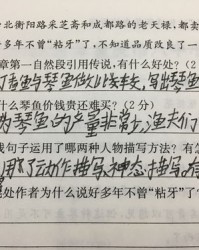 北衡阳路采芝斋和成都路的老天禄,都卖
多年不曾“粘牙”了,不知道品质改良了一
章第一自然段引用传说,有什么好处?(2
鱼与琴鱼做比较,写出琴鱼
什么琴鱼价钱贵还难买?(2分)
为琴鱼的产量非常少,渔夫们
戈句子运用了哪两种人物描写方法?有怎
用了动作描写,神态描写,
处作者为什么说好多年不曾“粘牙”了?(